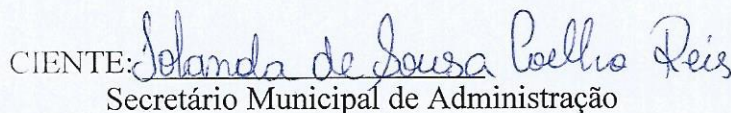 CIENTE: Iolanda de Sousa Coelho Reis
Secretário Municipal de Administração